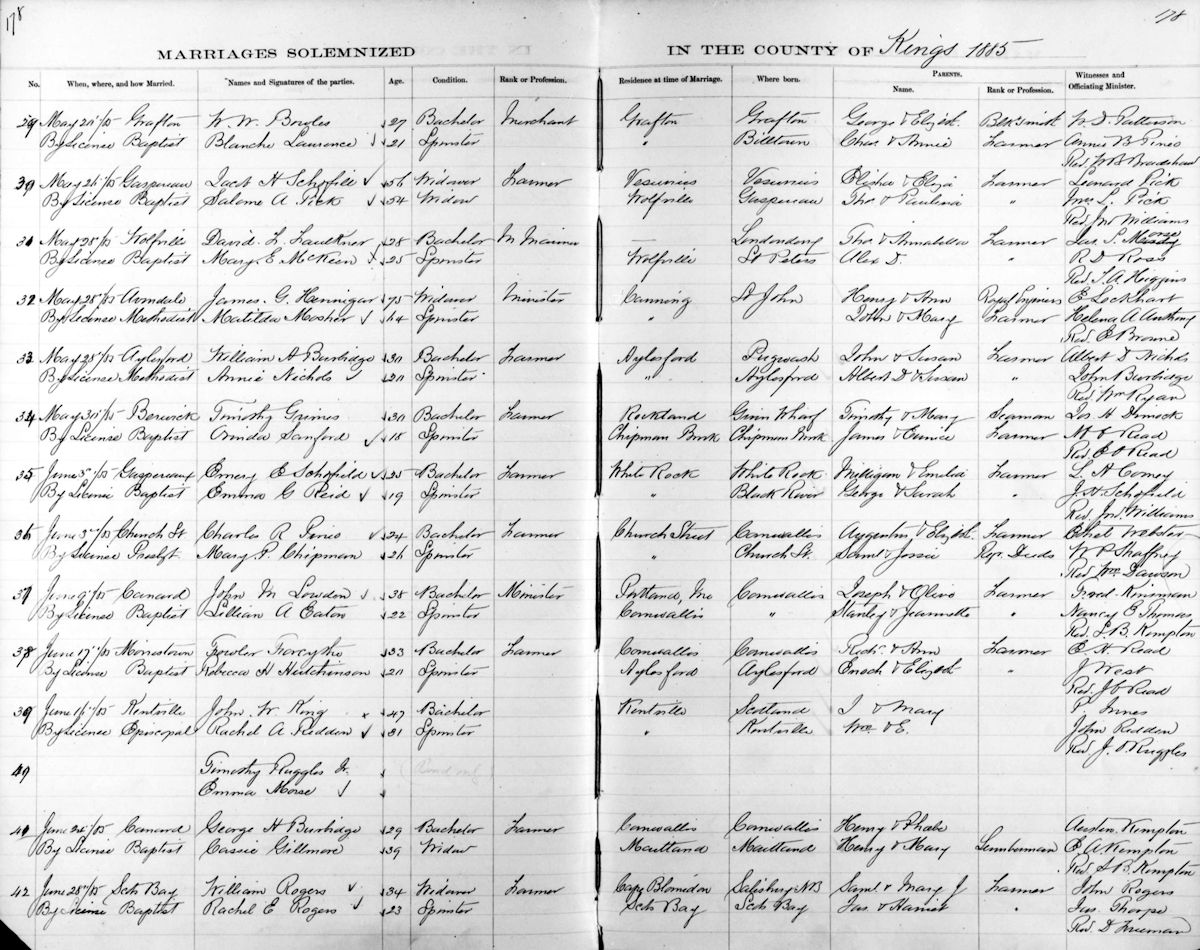 178
178
MARRIAGES SOLEMNIZED IN THE COUNTY OF Kings 1885
No. When, where, and how Married. Names and Signatures of the parties. Age. Condition. Rank or Profession. Residence at time of Marriage. Where born. PARENTS. Name. Rank or Profession. Witnesses and Officiating Minister.
29 May 20/85 Grafton W. W. Bowles 27 Bachelor Merchant Grafton Grafton George & Elizth. Blksmith W. D. Patterson
By License Baptist Blanche Laurence 21 Spinster " Billtown Chas. & Annie Farmer Annie B Pineo
Rev W B Bradshaw
30 May 26/85 Gaspereau H Schofield 56 Widower Farmer Vesuvius Vesuvius Elisha & Eliza Farmer Leonard Pick
By License Baptist Salome A Pick 54 Widow Wolfville Gaspereau Tho. & Paulina " L. Pick
Rev Jno Williams
31 May 28/85 Wolfville David. L. Faulkner 28 Bachelor M Mariner — Londonderry Tho. & Annabella Farmer Jas. S. Morse
By License Baptist Mary E McKeen 25 Spinster Wolfville St Peters Alex D. " R D Ross
Rev T. A. Higgins
32 May 28/85 Avondale James. G. Hennigar 75 Widower Minister Canning St John Henry & Ann Royal Engineers E Lockhart
By License Methodist Matilda Mosher 64 Spinster " John & Mary Farmer Helena A Anthony
Rev E Browne
33 May 28/85 Aylesford William A Burbidge 30 Bachelor Farmer Aylesford Pugwash John & Susan Farmer Albert D Nichols
By License Methodist Annie Nichols 20 Spinster " Aylesford Albert D & Susan " John Burbidge
Rev Wm Ryan
34 May 30/85 Berwick Timothy Grimes 30 Bachelor Farmer Rockland Givin Wharf Timothy & Mary Seaman Jos. H Dimock
By License Baptist Orinda Sanford 18 Spinster Chipman Brook Chipman Brook James & Eunice Farmer Read
Rev E O Read
35 June 3/85 Gaspereaux Emery E Schofield 25 Bachelor Farmer White Rock White Rock Milligan & Emelia Farmer L A Comey
By License Baptist Emma G Reid 19 Spinster " Black River George & Sarah " J. H Schofield
Rev. Jno. Williams
36 June 3/85 Church St Charles R Pineo 24 Bachelor Farmer Church Street Cornwallis Augustus & Elizth. Farmer Ethel Webster
By License Presbyt Mary P. Chipman 26 Spinster " Church St. Saml & Jessie Regr. Deeds W P Shaffner
Rev Wm Dawson
37 June 9/85 Canard John M Lowden 38 Bachelor Minister Portland, Me Cornwallis Joseph & Olive Farmer Fred. Kinsman
By License Baptist Lillian A Eaton 22 Spinster Cornwallis " Stanley & Jeannette " Nancy E Thomas
Rev. S. B. Kempton
38 June 17/85 Morristown Fowler Forcythe 33 Bachelor Farmer Cornwallis Cornwallis Richd. & Ann Farmer E. H. Read
By License Baptist Rebecca H Hutchinson 20 Spinster Aylesford Aylesford Enoch & Elizth " J West
Rev. J O Read
39 June 17/85 Kentville John. W. King 47 Bachelor Kentville Scotland J & Mary P. Innes
By License Episcopal Rachel A Redden 31 Spinster " Kentville Wm & E. John Redden
Rev J. O. Ruggles
40 Timothy Ruggles Jr.
Emma Morse
41 June 24/85 Canard George H Burbidge 29 Bachelor Farmer Cornwallis Cornwallis Henry & Phebe Austen. Kempton
By License Baptist Cassie Gillmore 39 Widow Maitland Maitland Henry & Mary Lumberman E A Kempton
Rev S B. Kempton
42 June 28/85 Scots Bay William Rogers 34 Widower Farmer Cape Blomidon Salisbury NB Saml & Mary J Farmer John Rogers
By License Baptist Rachel E Rogers 23 Spinster Scots Bay Scots Bay Jas. & Harriet " Jas. Thorpe
Rev D Freeman